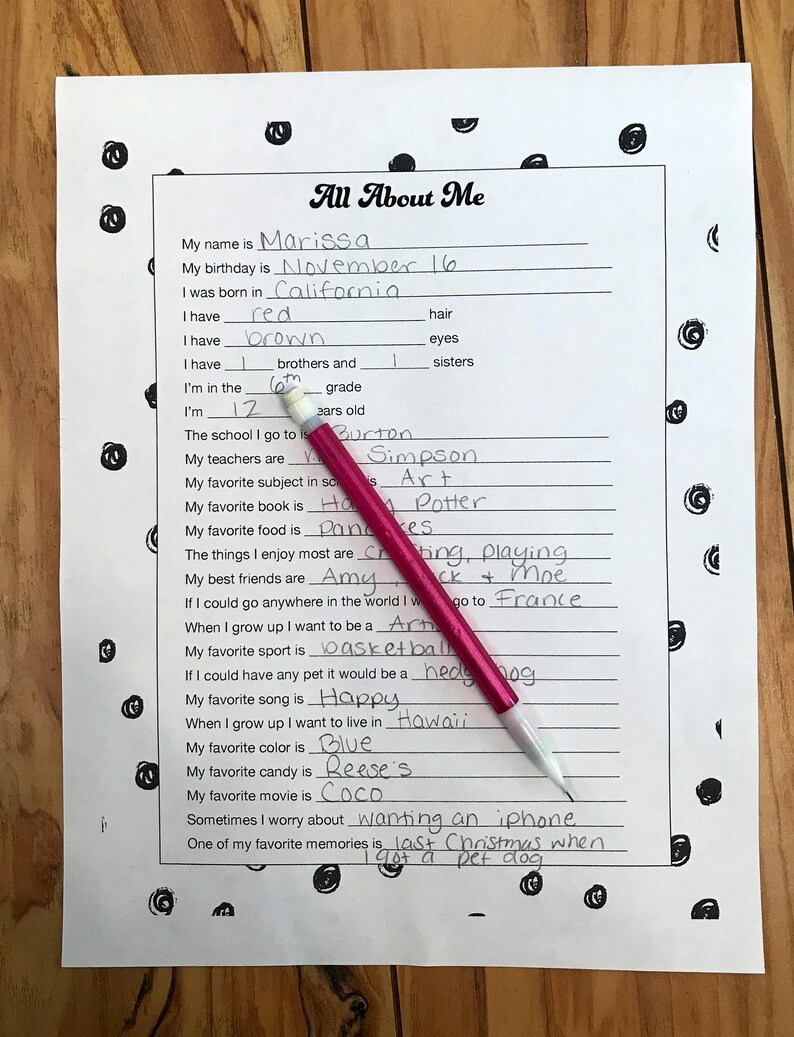 All About Me
My name is Marissa
My birthday is November 16
I was born in California
I have red hair
I have brown eyes
I have 1 brothers and 1 sisters
I'm in the 6th grade
I'm 12 ears old
The school I go to is Burton
My teachers are Simpson
My favorite subject in is Art
My favorite book is Potter
My favorite food is
The things I enjoy most are playing
My best friends are Amy, + Moe
If I could go anywhere in the world I go to France
When I grow up I want to be a
My favorite sport is basketball
If I could have any pet it would be a
My favorite song is Happy
When I grow up I want to live in Hawaii
My favorite color is Blue
My favorite candy is Reese's
My favorite movie is Coco
Sometimes I worry about wanting an iphone
One of my favorite memories is last Christmas when
I got a pet dog